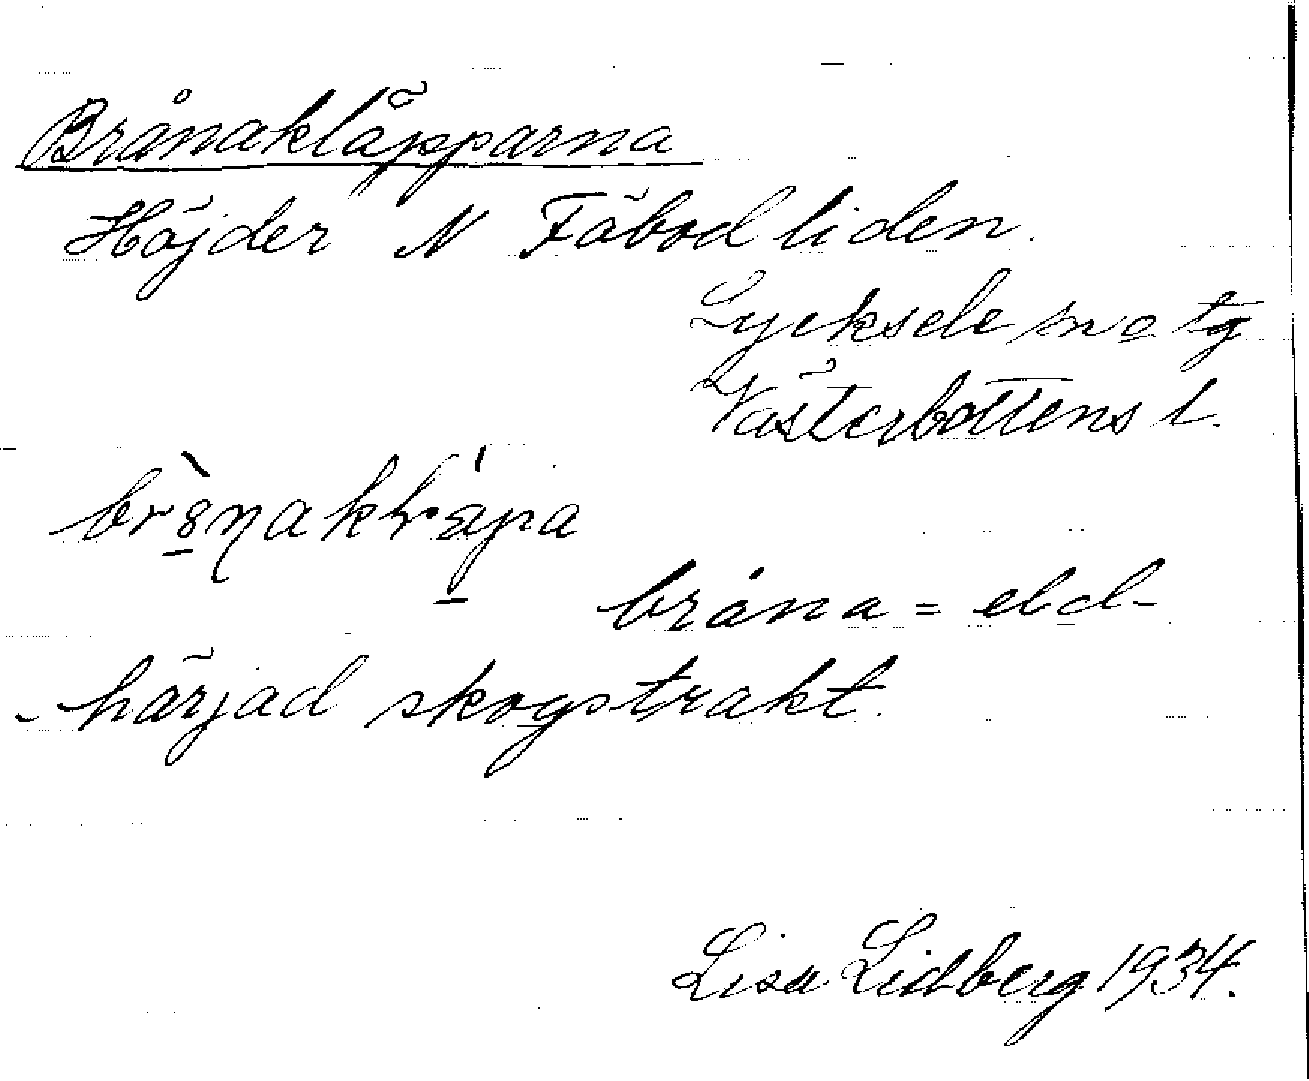 Brånakläpparna
Höjder N Fäbodliden.
Lycksele sn o tg
Västerbottens l.
bråna = eld-
härjad skogstrakt.
Lisa Lidberg 1934.